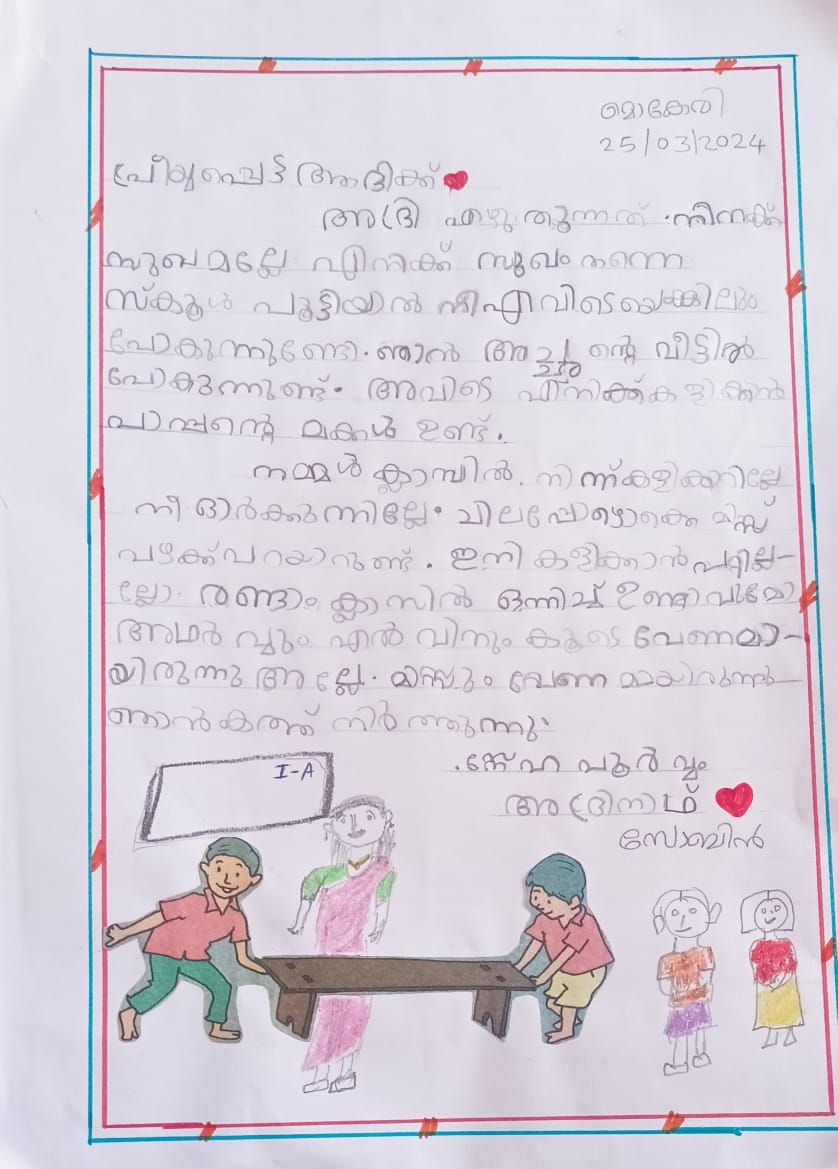 മൊകേരി
25/03/2024
പ്രീയ്യപ്പെട്ട ആദിക്ക്
അദ്രി എഴുതുന്നത്. നിനക്ക്
സുഖമല്ലേ എനിക്ക് സുഖം തന്നെ
സ്കൂൾ പൂട്ടിയാൽ നീ എവിടെയെങ്കിലും
പോകുന്നുണ്ടോ. ഞാൻ അച്ഛന്റെ വീട്ടിൽ
പോകുന്നുണ്ട്. അവിടെ എനിക്ക് കളിക്കാൻ
പാപ്പന്റെ മക്കൾ ഉണ്ട്.
നമ്മൾ ക്ലാസിൽ. നിന്ന് കളിക്കുന്നില്ലേ
നീ ഓർക്കുന്നില്ലേ. ചിലപ്പോഴൊക്കെ മിസ്സ്
വഴക്ക് പറയാറുണ്ട്. ഇനി കളിക്കാൻ പറ്റില്ല-
ല്ലോ. രണ്ടാം ക്ലാസിൽ ഒന്നിച്ച് ഉണ്ടാവുമോ
അഥർവ്വും എൽവിനും കൂടെ വേണമാ-
യിരുന്നു അല്ലേ. മിസ്സും വേണമായിരുന്നു
ഞാൻ കത്ത് നിർത്തുന്നു.
സ്നേഹപൂർവ്വം
അദ്രിനാഥ്
സോബിൻ
I-A